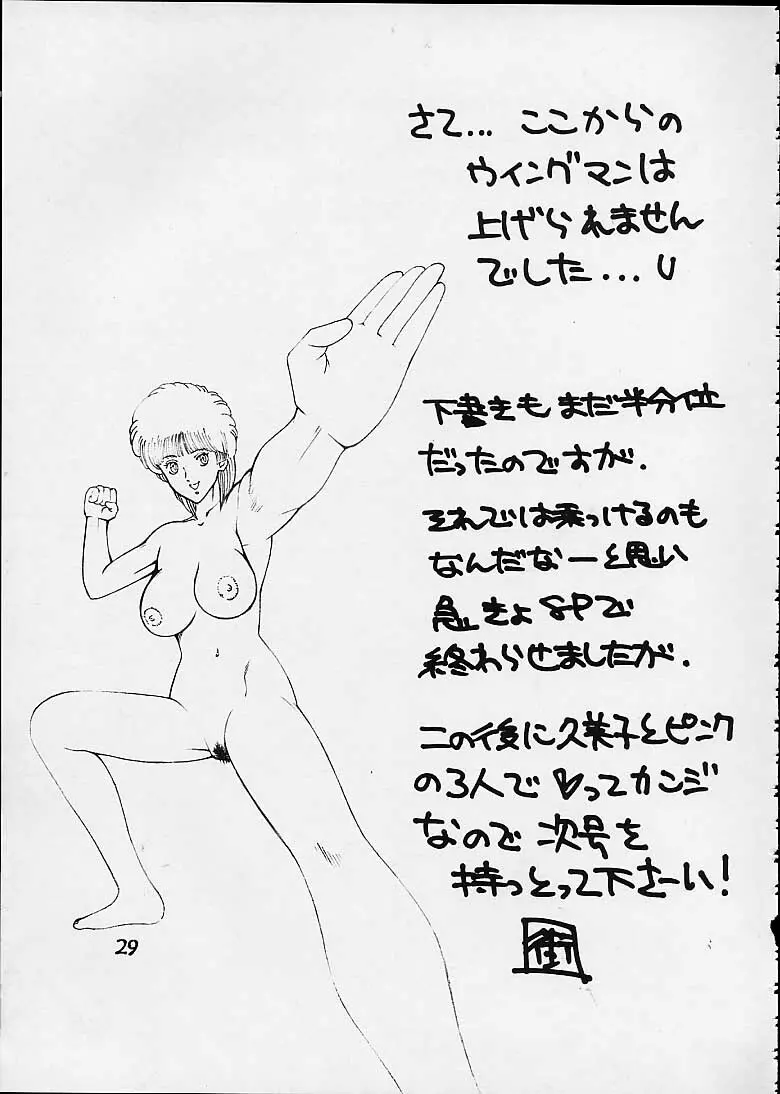 さて... ここからの
ウイングマンは
上げられません
でした...U
下書きもまだ半分位
だったのですが.
それでは乗っけるのも
なんだなーと思い
急きょSPで
終わらせましたが.
この後に久美子とピンク
の3人で♡ってカンジ
なので次号を
持っとって下さーい!
街
29